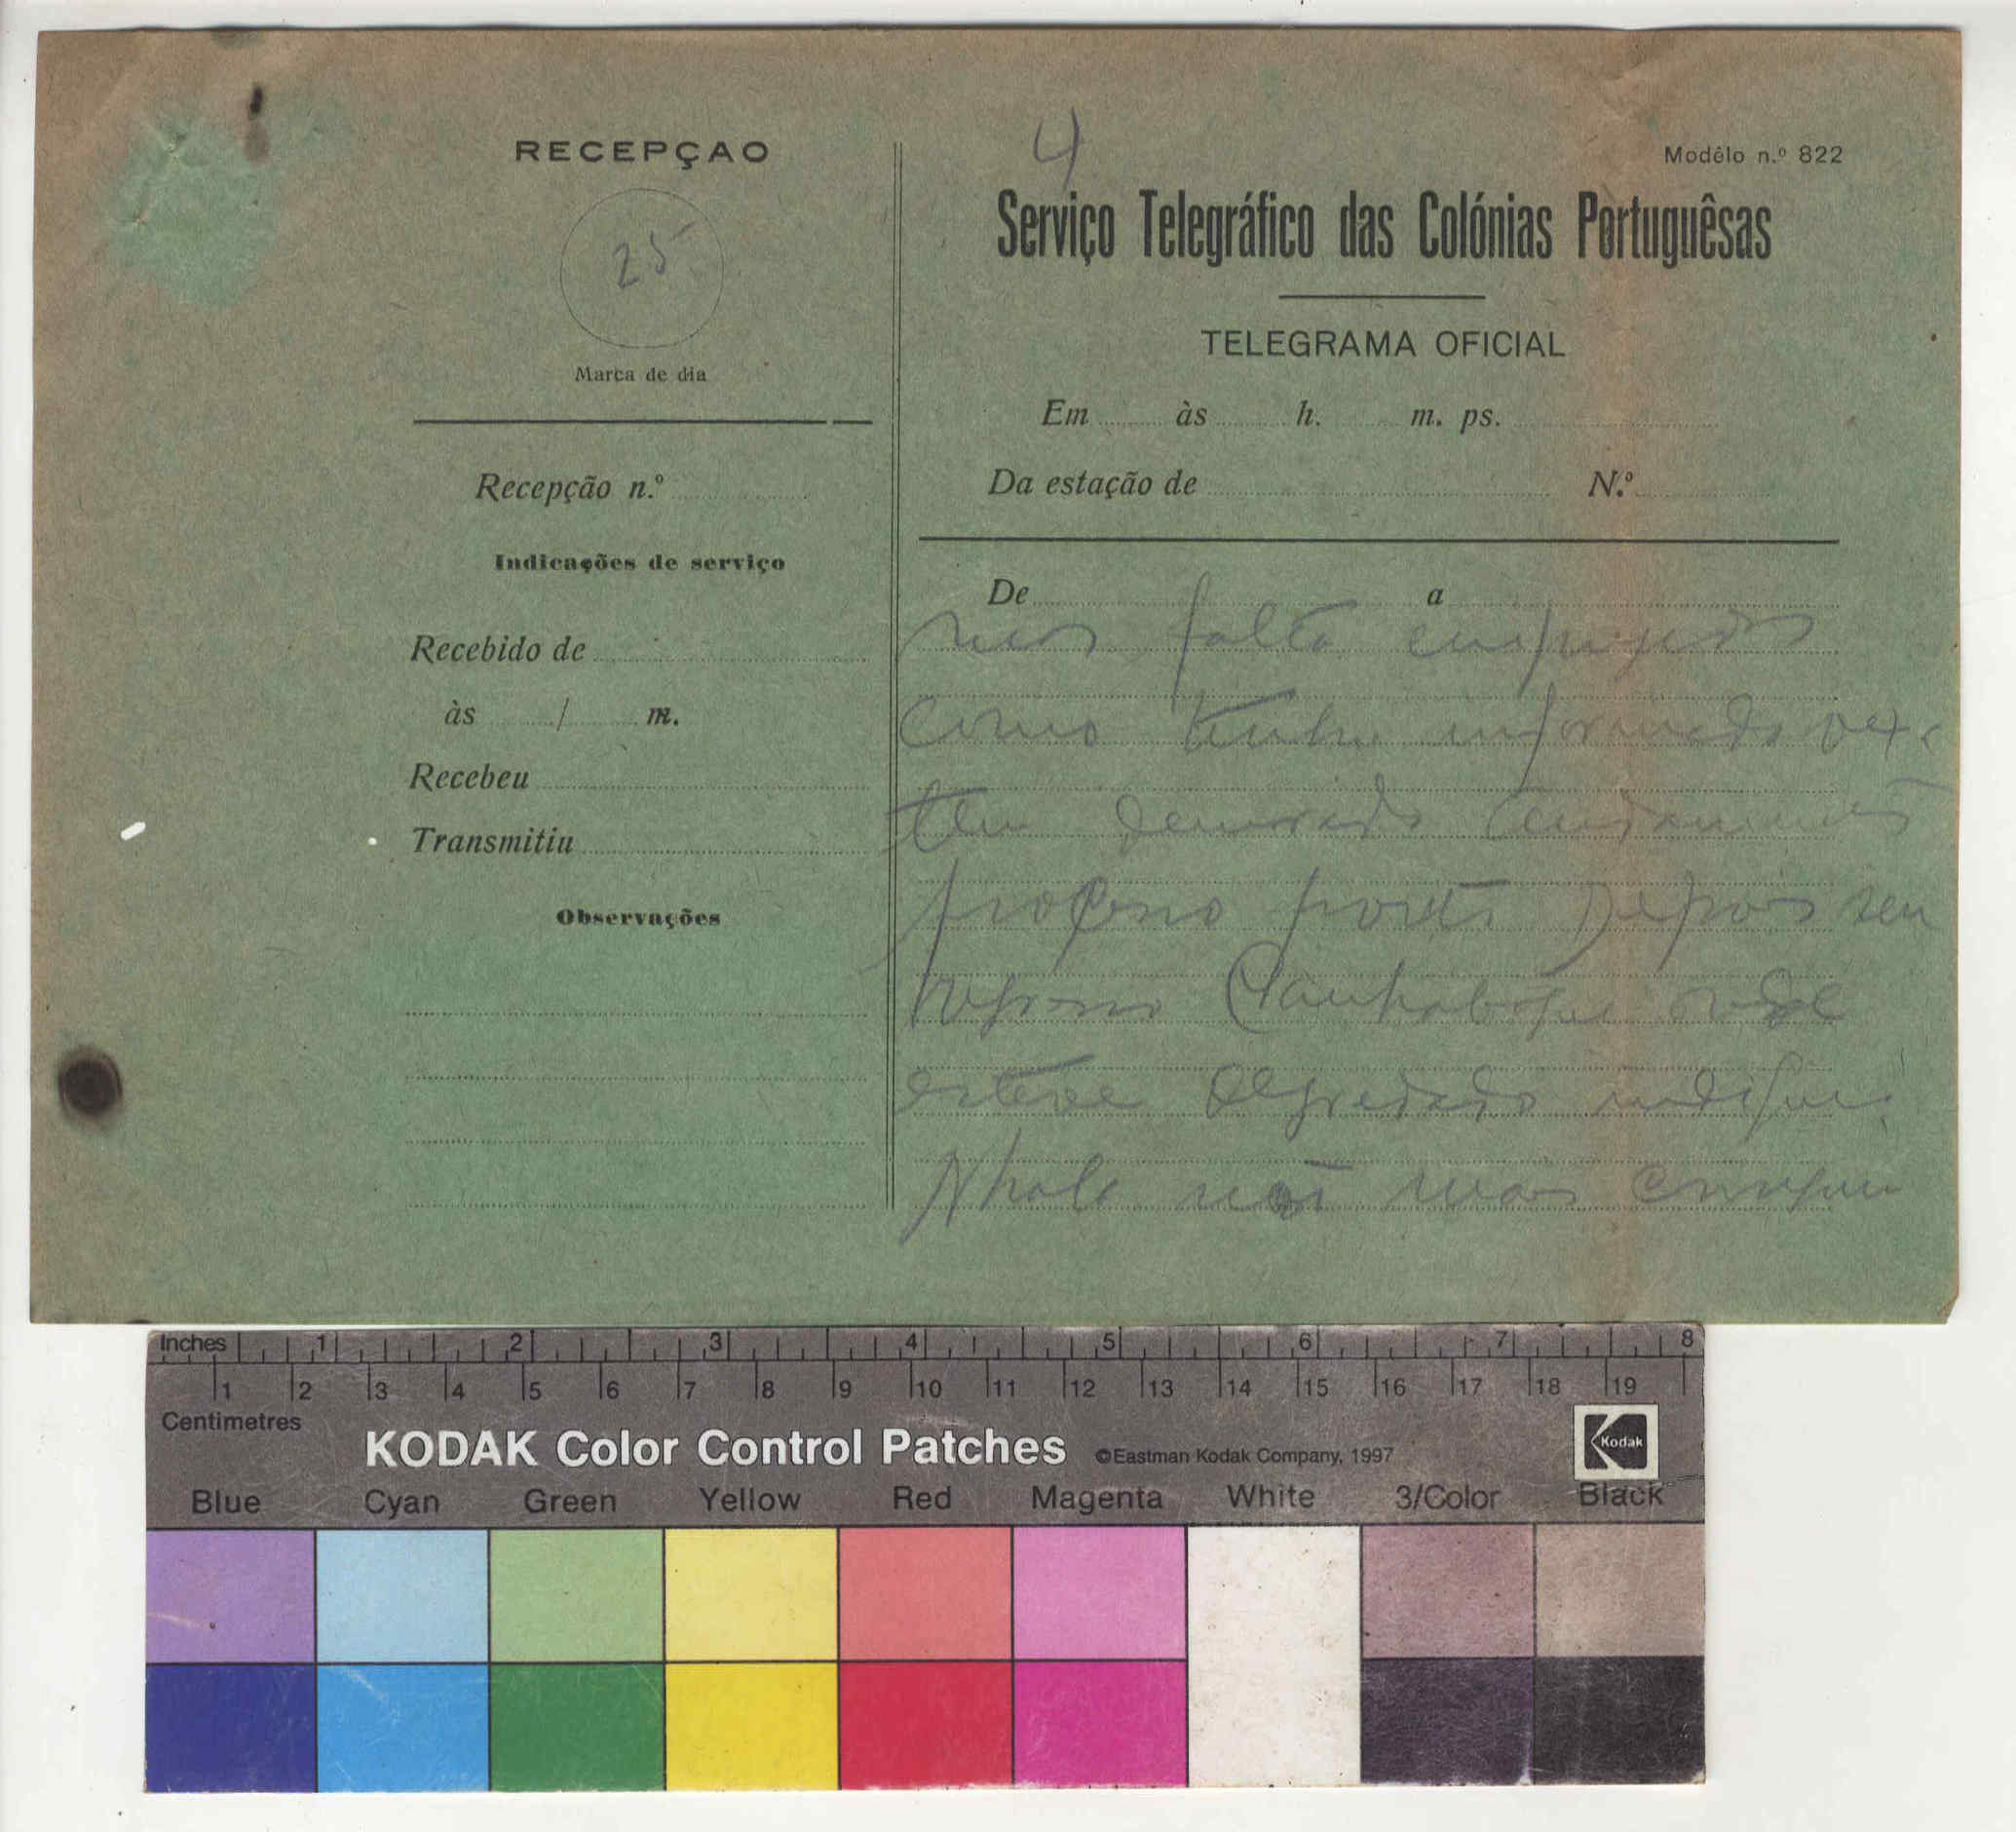 RECEPÇAO
25
Marca de dia
Recepção n.º
Indicações de serviço
Recebido de
às / m.
Recebeu
Transmitiu
Observações
4
Modêlo n.º 822
Serviço Telegráfico das Colónias Portuguêsas
TELEGRAMA OFICIAL
Em às h. m. ps.
Da estação de N.º
De a
mas falta
como tenho informado
tem demorado
depois seu
regresso Canhabaque onde
esteve degredado
não mais
Inches 1 2 3 4 5 6 7 8
1 2 3 4 5 6 7 8 9 10 11 12 13 14 15 16 17 18 19
Centimetres
KODAK Color Control Patches ©Eastman Kodak Company, 1997 Kodak
Blue Cyan Green Yellow Red Magenta White 3/Color Black